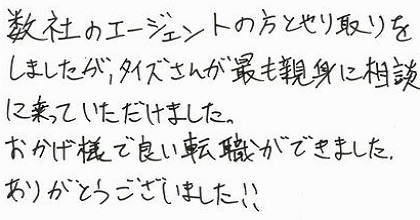 数社のエージェントの方とやり取りを
しましたが、タイズさんが最も親身に相談
に来っていただけました。
おかげ様で良い転職ができました.
ありがとうございました!!